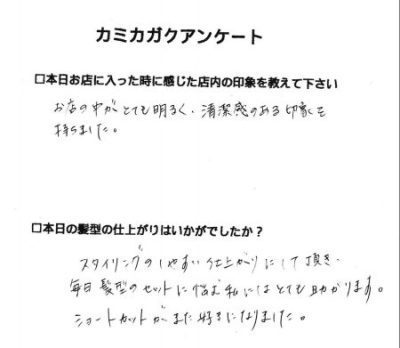 カミカガクアンケート
□本日お店に入った時に感じた店内の印象を教えて下さい
お店の中がとても明るく、清潔感のある印象を
持ちました。
□本日の髪型の仕上がりはいかがでしたか？
スタイリングのしやすい仕上がりにして頂き、
毎日髪型のセットに悩む私にはとても助かります。
ショートカットがまた好きになりました。